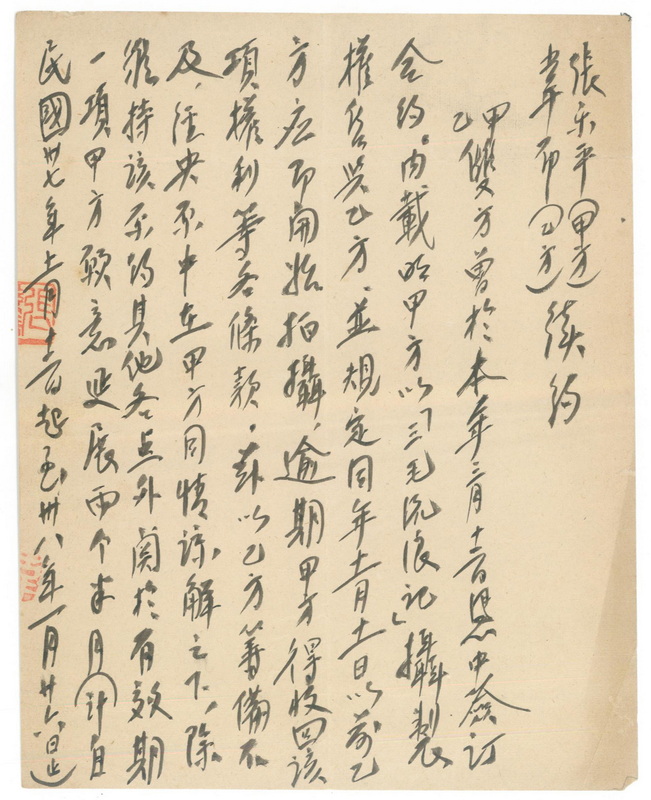 張乐平（甲方）
韋布（乙方） 續約
甲乙雙方曾於本年三月十二日憑中簽訂
合約。內載明甲方以「三毛流浪記」攝製
權售與乙方．並規定同年十一月十一日以前乙
方应即開始拍攝，逾期甲方得收回該
項權利等各條款．茲以乙方籌備不
及，經央原中在甲方同情諒解之下，除
維持該原約其他各点外関於有效期
一項甲方願意延展兩个半月（計自
民國卅七年十一月十二日起至卅八年一月廿六日止）